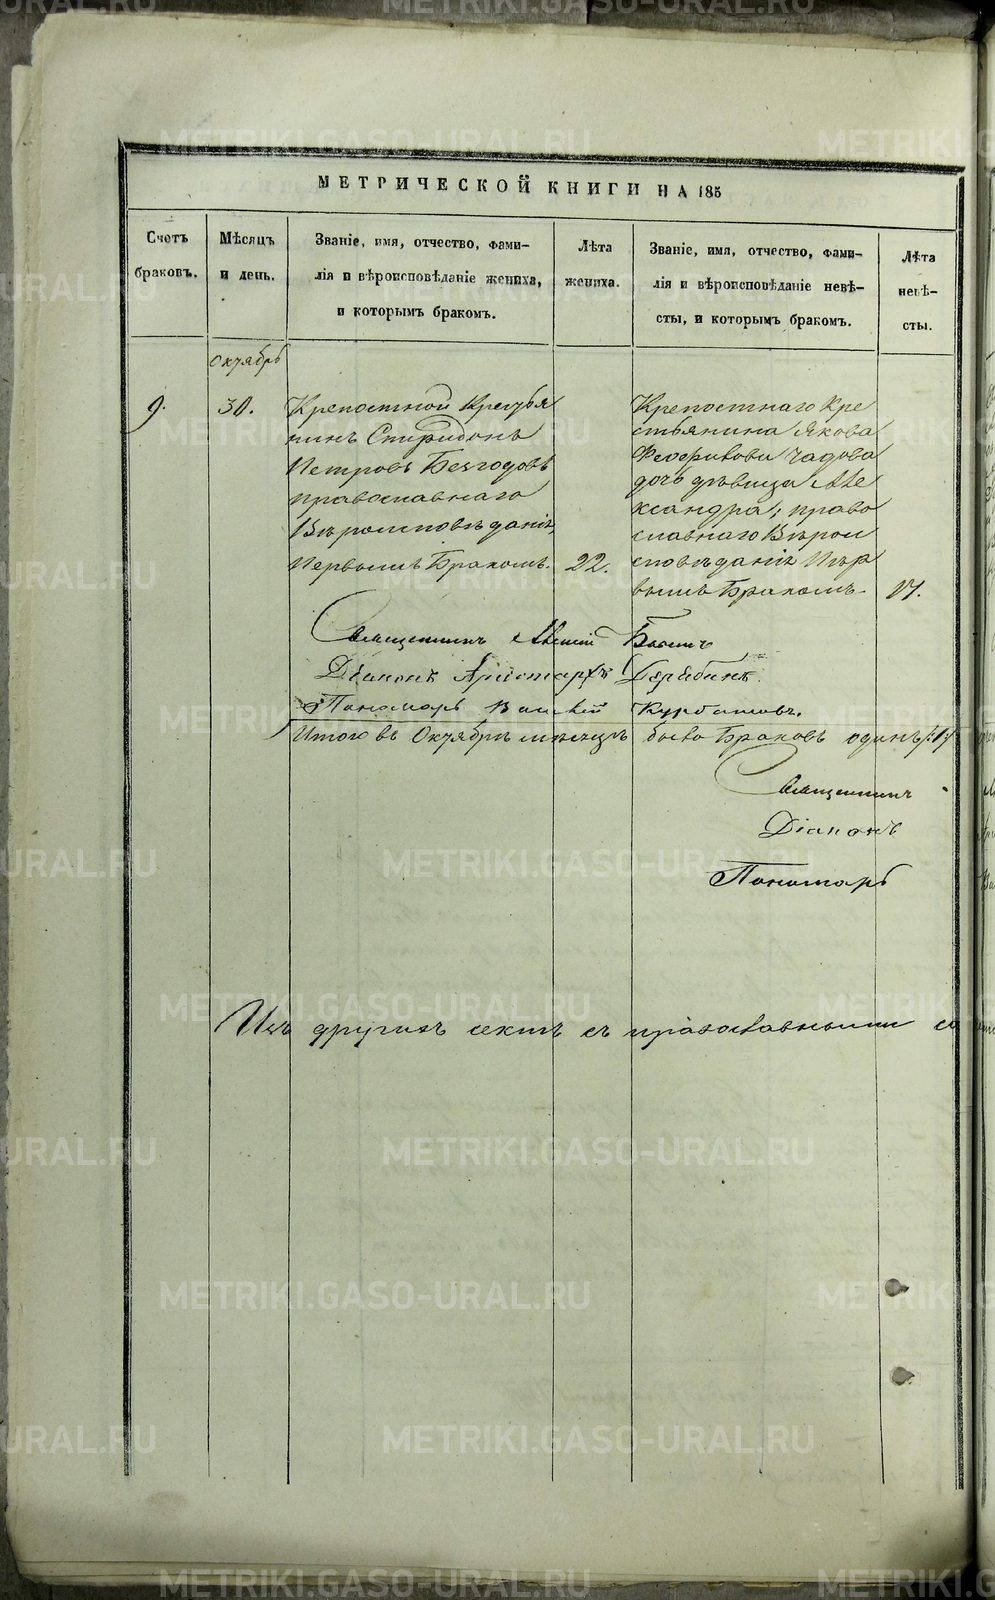 МЕТРИЧЕСКОЙ КНИГИ НА 185
Счетъ
браковъ.
Мѣсяцъ
и день.
Званіе, имя, отчество, фами-
лія и вѣроисповѣданіе жениха,
и которымъ бракомъ.
Лѣта
жениха.
Званіе, имя, отчество, фами-
лія и вѣроисповѣданіе невѣ-
сты, и которымъ бракомъ.
Лѣта
невѣ-
сты.
Октябрь
9.
30.
Крепостной Крестья
нинъ Спиридонъ
Петровъ Безгодовъ
православнаго
Вѣроисповѣданія,
Первымъ Бракомъ.
22.
Крепостнаго Кре
стьянина Якова
Чадова
дочь дѣвица Але
ксандра, право
славнаго Вѣрои
сповѣданія Пер
вымъ Бракомъ
17.
Священникъ Алексій
Діаконъ Аристархъ
Пономарь Василій Курбатовъ.
Итого въ Октябрѣ мѣсяцѣ было Браковъ одинъ /:1:/
Священникъ
Діаконъ
Пономарь
Изъ другихъ сектъ съ православными со
METRIKI.GASO-URAL.RU